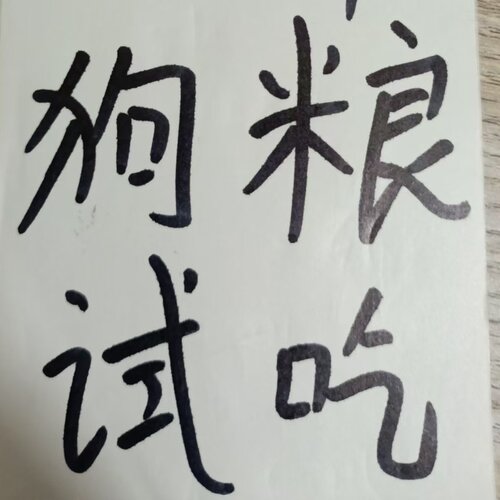 狗粮
试吃